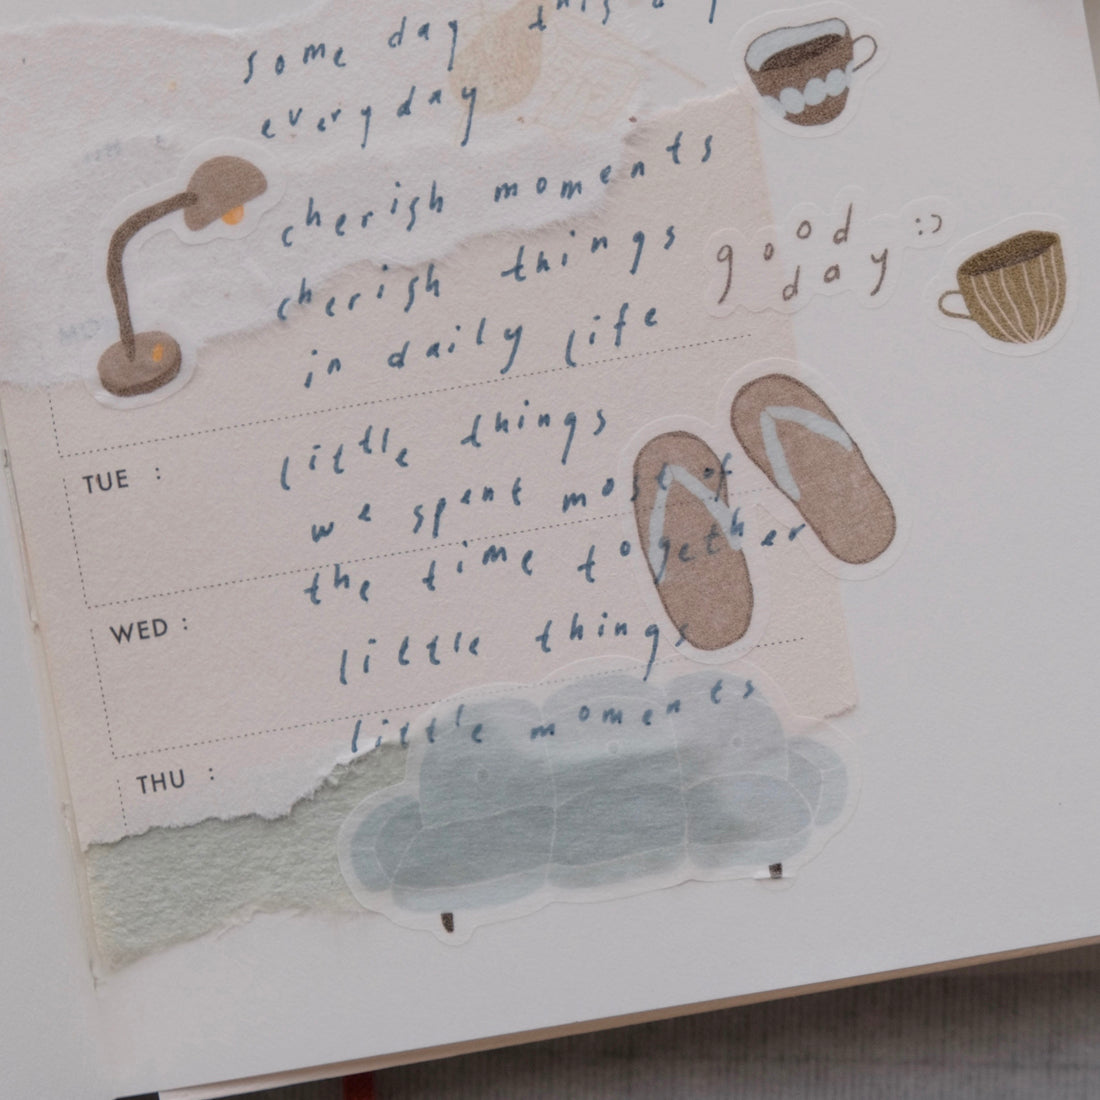 some day this
everyday
cherish moments
cherish things
in daily life
good :)
day
TUE :
little things
we spent most of
the time together
WED :
little things
little moments
THU :